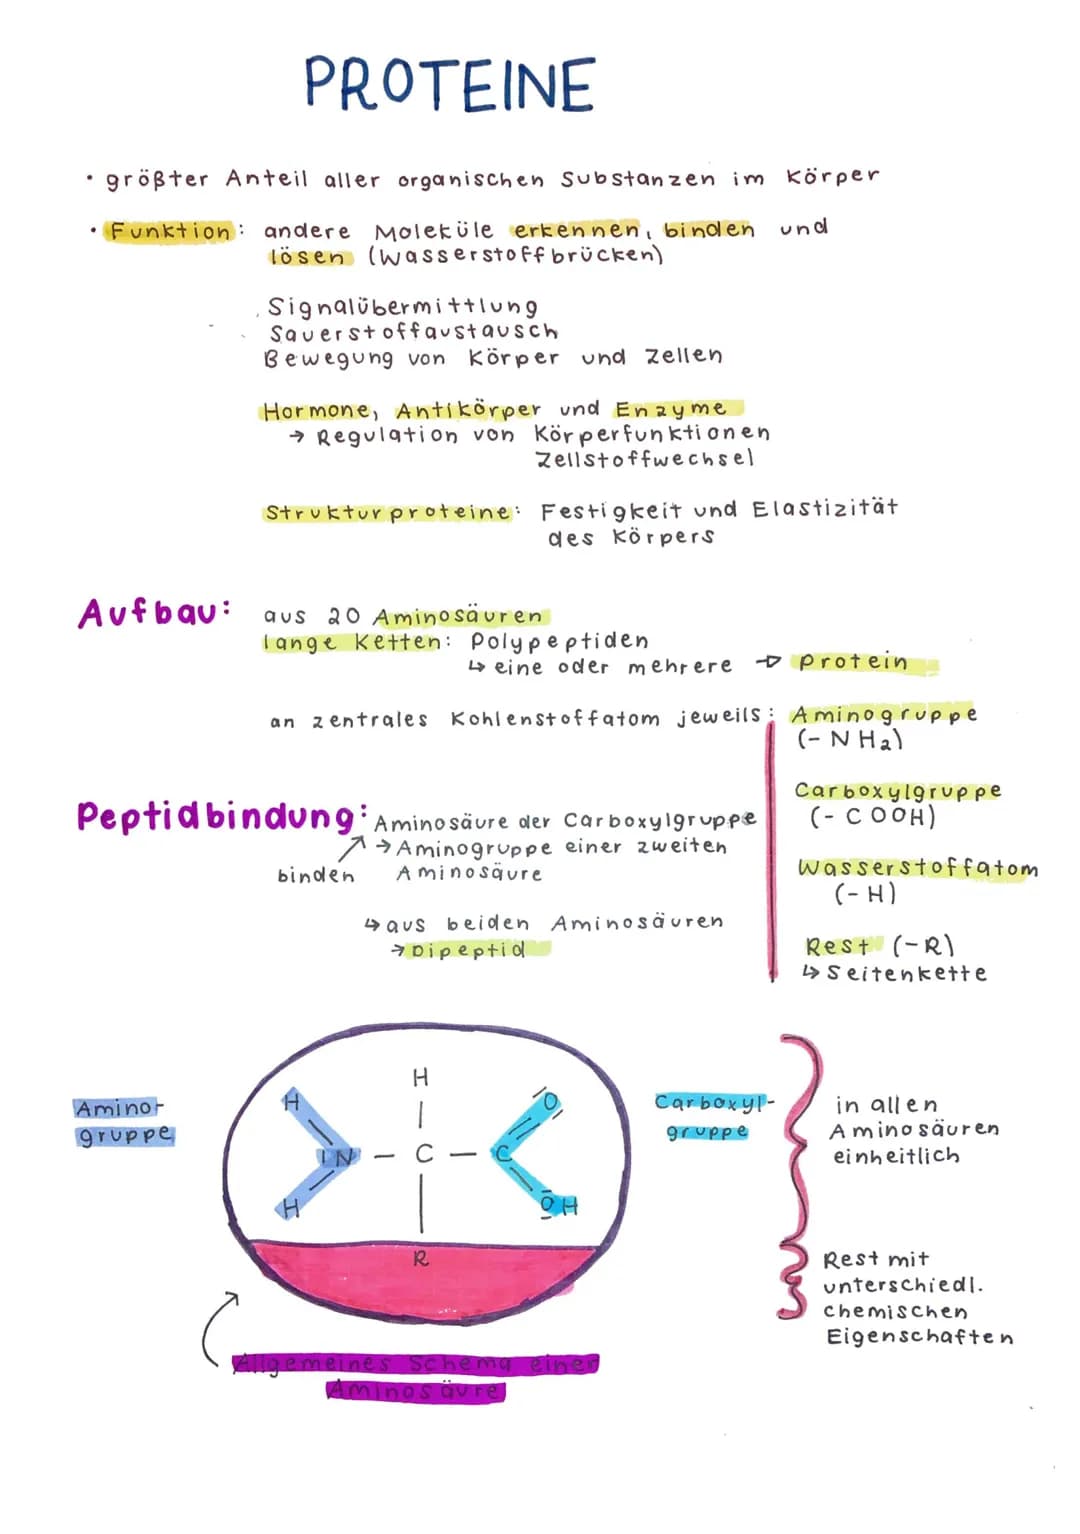 PROTEINE
• größter Anteil aller organischen Substanzen im Körper
• Funktion: andere Moleküle erkennen, binden und
lösen (Wasserstoffbrücken)
Signalübermittlung
Sauerstoffaustausch
Bewegung von Körper und Zellen
Hormone, Antikörper und Enzyme
→ Regulation von Körperfunktionen
Zellstoffwechsel
Strukturproteine: Festigkeit und Elastizität
des Körpers
Aufbau: aus 20 Aminosäuren
lange Ketten: Polypeptiden
↳ eine oder mehrere → Protein
an zentrales Kohlenstoffatom jeweils: Aminogruppe
(-NH₂)
Carboxylgruppe
(-COOH)
Wasserstoffatom
(-H)
Rest (-R)
↳ Seitenkette
Peptidbindung: Aminosäure der Carboxylgruppe
↗ → Aminogruppe einer zweiten
binden Aminosäure
↳ aus beiden Aminosäuren
→ Dipeptid
Amino-
gruppe
H
H
O
N — C — C
H
OH
R
Carboxyl-
gruppe
in allen
Aminosäuren
einheitlich
Rest mit
unterschiedl.
chemischen
Eigenschaften
Allgemeines Schema einer
Aminosäure